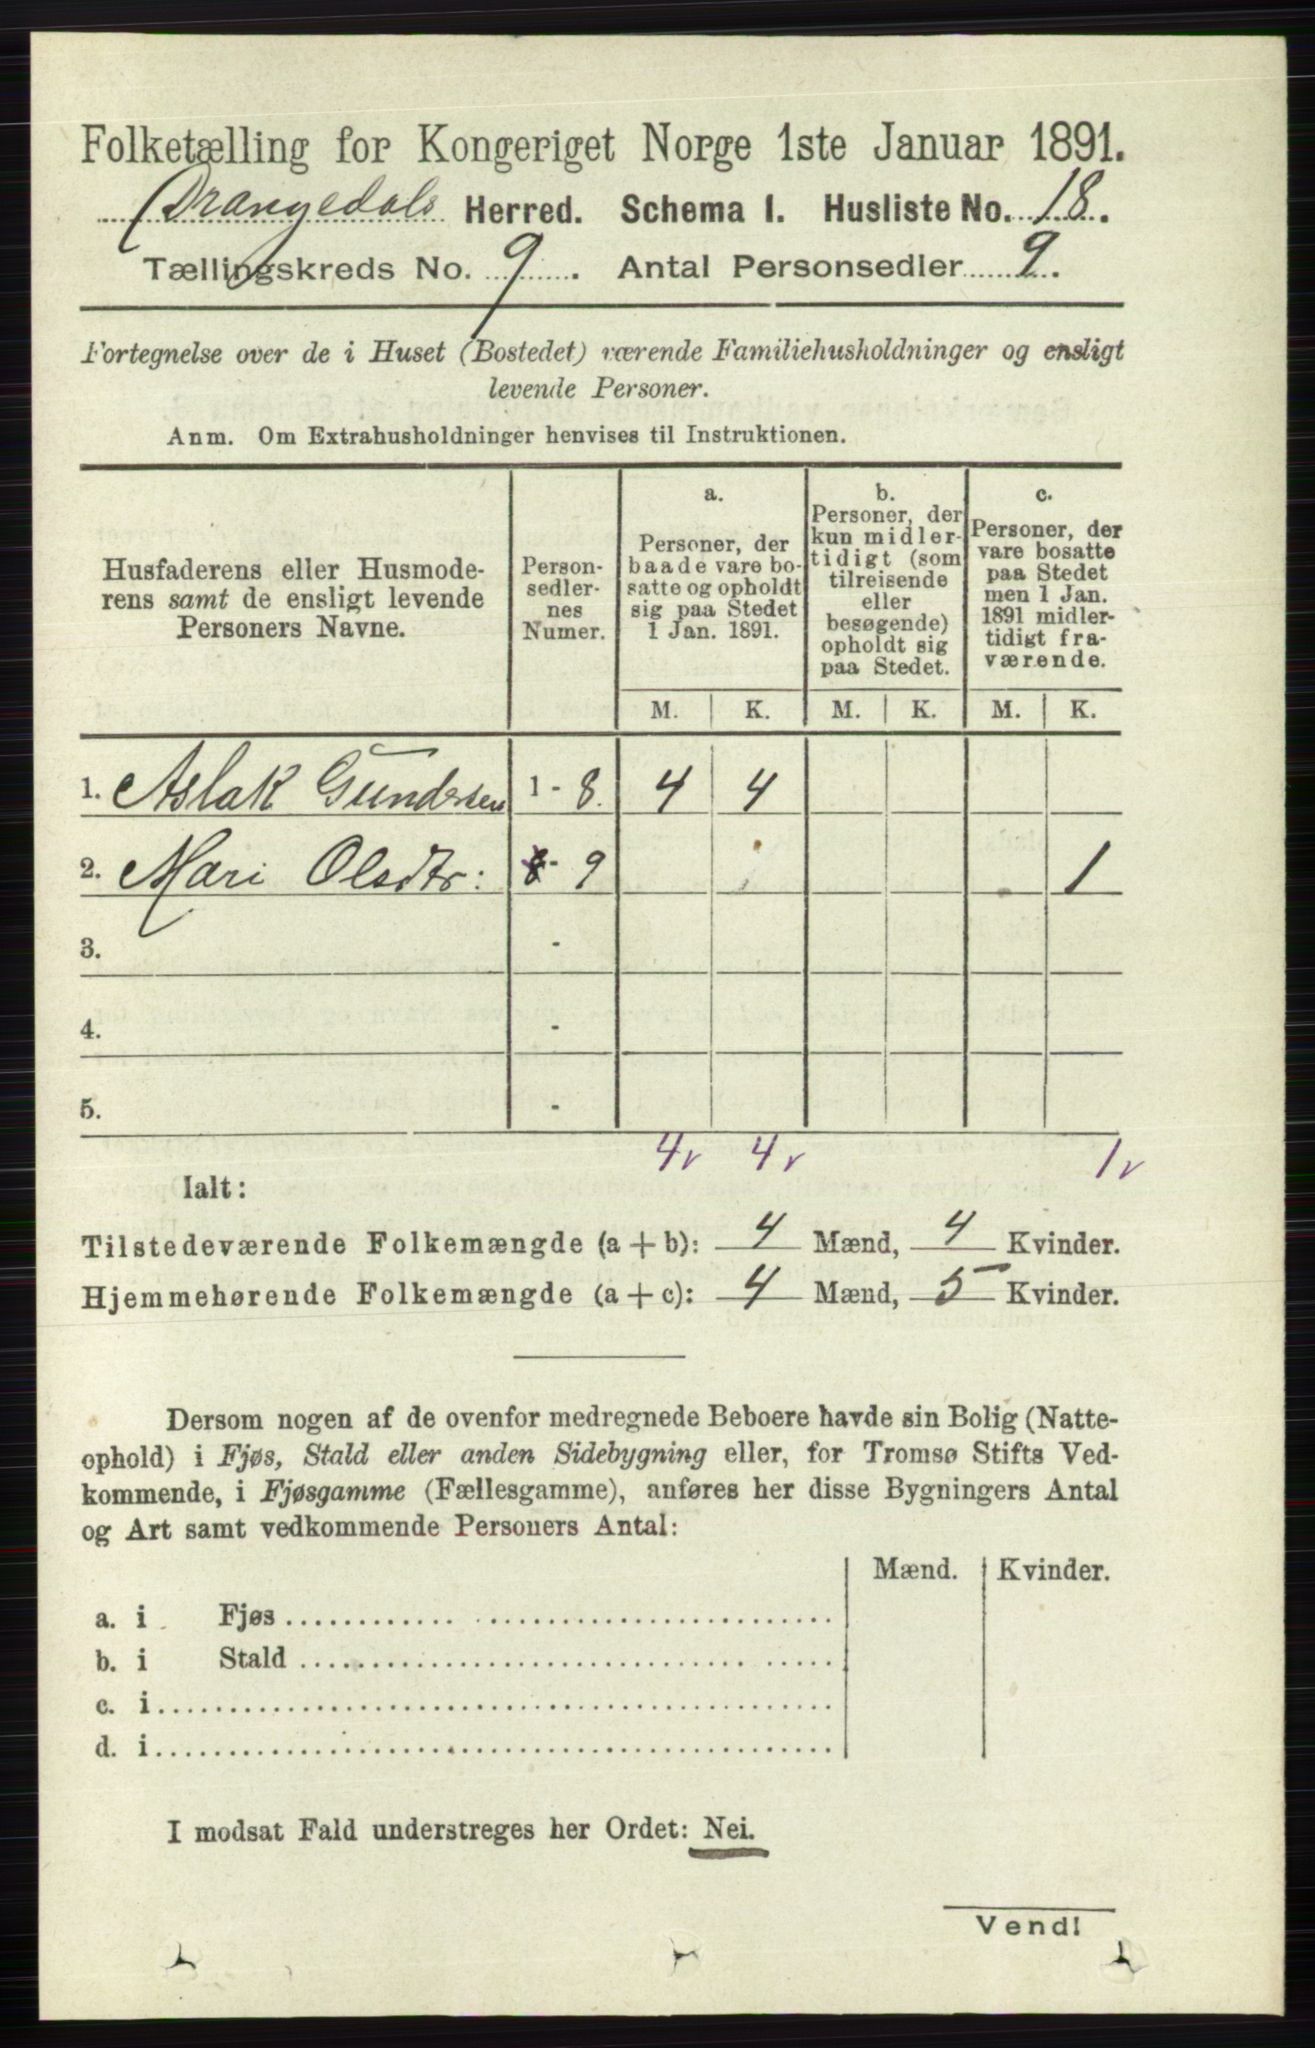 Folketælling for Kongeriget Norge 1ste Januar 1891.
Drangedals Herred. Schema I. Husliste No. 18.
Tællingskreds No. 9. Antal Personsedler 9.
Fortegnelse over de i Huset (Bostedet) værende Familiehusholdninger og ensligt
levende Personer.
Anm. Om Extrahusholdninger henvises til Instruktionen.
Husfaderens eller Husmode-
rens samt de ensligt levende
Personers Navne.
Person-
sedler-
nes
Numer.
a.
Personer, der
baade vare bo-
satte og opholdt
sig paa Stedet
1 Jan. 1891.
b.
Personer, der
kun midler-
tidigt (som
tilreisende
eller
besøgende)
opholdt sig
paa Stedet.
c.
Personer, der
vare bosatte
paa Stedet
men 1 Jan.
1891 midler-
tidigt fra-
værende.
M. K. M. K. M. K.
1. Aslak Gundersen 1 - 8. 4 4
2. Mari Olsdtr: - 9 1
3. -
4. -
5. -
4 v 4 v 1 v
Ialt:
Tilstedeværende Folkemængde (a + b): 4 Mænd, 4 Kvinder.
Hjemmehørende Folkemængde (a + c): 4 Mænd, 5 Kvinder.
Dersom nogen af de ovenfor medregnede Beboere havde sin Bolig (Natte-
ophold) i Fjøs, Stald eller anden Sidebygning eller, for Tromsø Stifts Ved-
kommende, i Fjøsgamme (Fællesgamme), anføres her disse Bygningers Antal
og Art samt vedkommende Personers Antal:
Mænd. Kvinder.
a. i Fjøs
b. i Stald
c. i
d. i
I modsat Fald understreges her Ordet: Nei.
Vend!